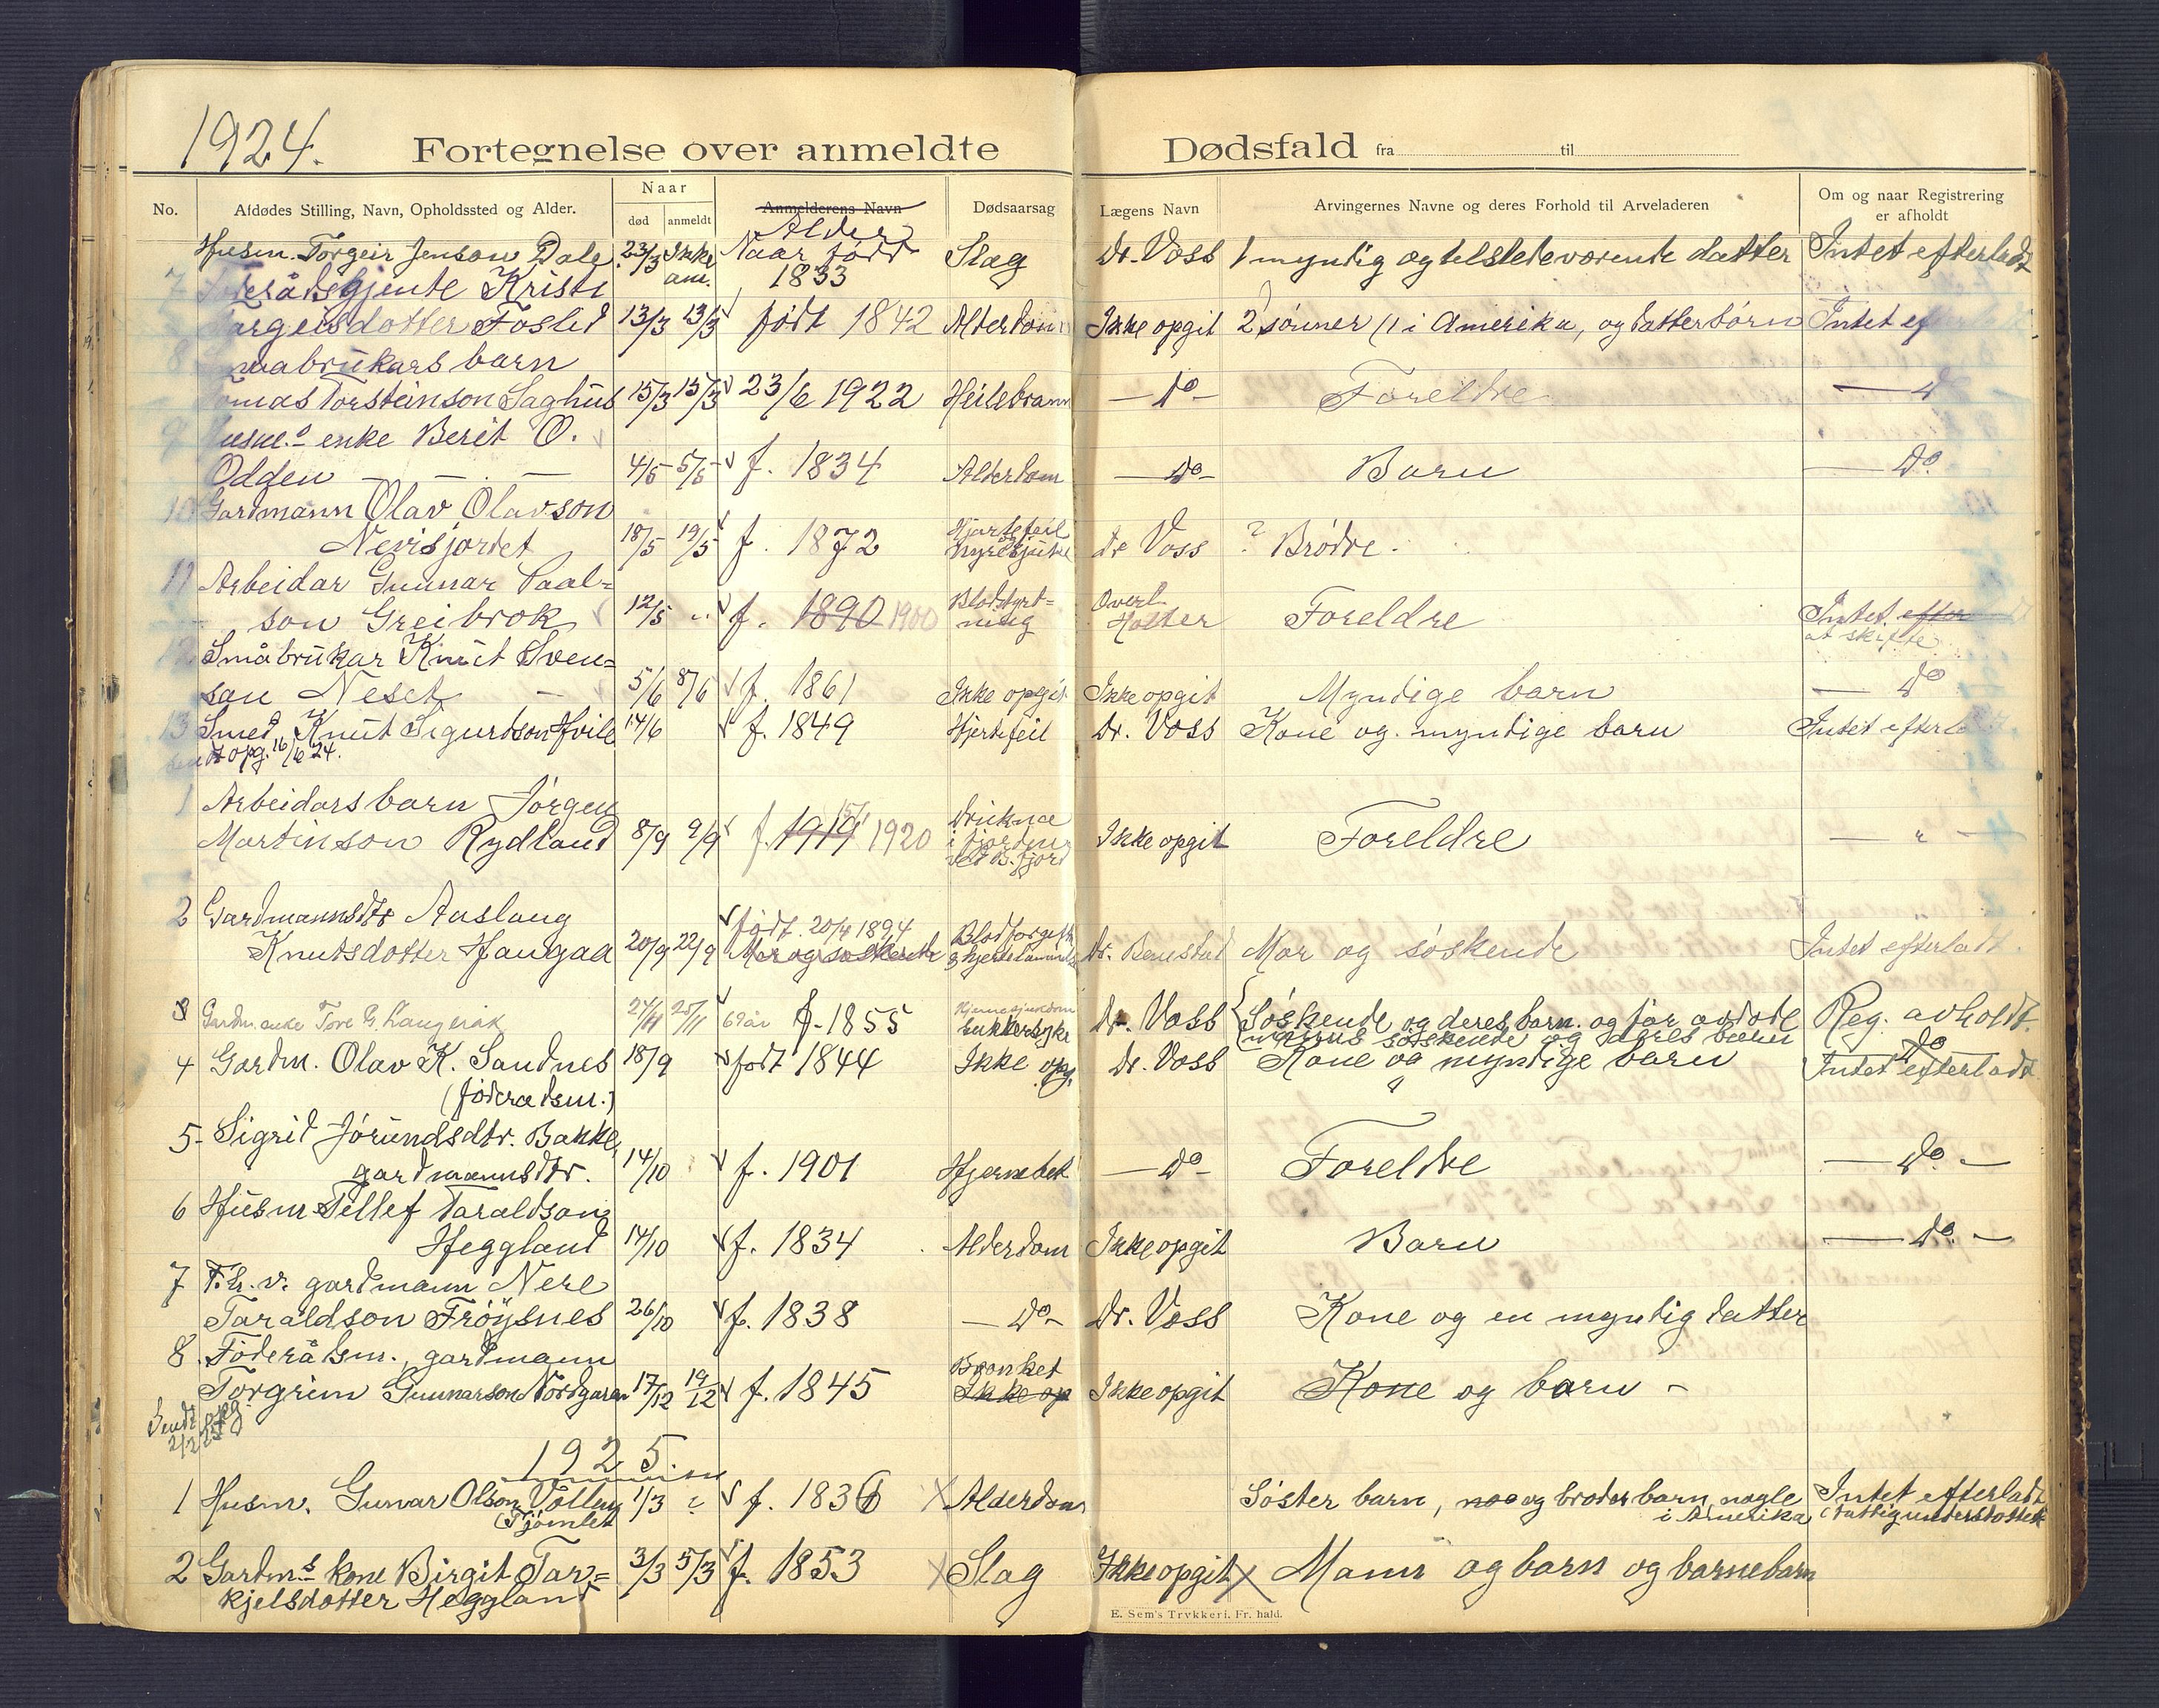 1924.
Fortegnelse over anmeldte Dødsfald fra til
No. Afdødes Stilling, Navn, Opholdssted og Alder. Naar død anmeldt Anmelderens Navn Dødsaarsag Lægens Navn Arvingernes Navne og deres Forhold til Arveladeren Om og naar Registrering er afholdt
Alder
Naar født
Husm. Torgeir Jenson Dale 23/3 Ikke anm. 1833 Slag Dr. Voss 1 myndig og telstedeværende datter Intet efterladt
7 Føderådsgjente Kristi
Targeisdotter Foslid 13/3 23/3 født 1842 Alderdom Ikke opgit 2 sønner (1 i Amerika, og datterbørn Intet ef
8 Smaabrukars barn
Tomas Torsteinson Saghus 15/3 15/3 23/6 1922 Heilebrann — do — Foreldre — do
9 Husm.s enke Berit O.
Odden — — 4/5 5/5 f. 1834 Alderdom — do — Barn — do.
10 Gardmann Olav Olavson
Neirsjordet 18/5 19/5 f. 1872 Hjartefeil nyresjuke Dr Voss ? Brødre.
11 Arbeidar Gunnar Paal=
son Greibrok 12/5 " f. 1890 1900 Blodstyrt=
ning Overl. Holter Foreldre Intet efter
at skifte
12 Småbrukar Knut Sven=
son Neset — 5/6 8/6 f. 1861 Ikke opgit Ikke opgit Myndige barn — do
13 Smed Knut Sigurdson Hvile 14/6 f. 1849 Hjertefeil Dr. Voss Kone og myndige barn Intet efterl
sendt opg. 16/6 24.
1 Arbeidars barn Jørgen
Martinson Rydland 8/9 9/9 f. 1919 15/1 1920 Druknae
i fjorden
ved B. fjord Ikke opgit Foreldre — " —
2 Gardmannsdtr Aaslaug
Knutsdotter Haugaa 20/9 22/9 født 20/4 1894
Mor og søskende Blodforgiftn
& hjertelammelse Dr. Benestad Mor og søskende Intet efterladt.
3 Gardm. enke Tore G. Langerak 24/11 25/11 69 år f. 1855 Sukkersyke Dr. Voss Søskende og deres barn. og før avdøde
søskende og deres barn Reg. avholdt.
4 Gardm. Olav K. Sandnes 18/9 født 1844 Ikke opg. Dr. Voss Kone og myndige barn do
Intet efterladt
(føderadsm.)
5 Sigrid Jørundsdtr. Bakke
gardmannsdtr. 14/10 f. 1901 Hjernebet — do — Foreldre — do. —
6 Husm Tellef Taraldson
Heggland 14/10 f. 1834 Alderdom Ikke opgit Barn — do. —
7 F. h. v. gardmann Nere
Taraldson Frøysnes 26/10 f. 1838 — do — Dr. Voss Kone og en myndig datter
8. Føderådsm., gardmann
Torgrim Gunnarson Nordgaren 17/12 19/12 f. 1845 Bronket
Ikke op Ikke opgit Kone og barn —
Sendt opg.
2/2 25
1925.
1 Husm. Gunvar Olson Vollen
(Tjomlet 1/3 ? f. 1836 Alderdom Søster barn, noe og broder barn, nogle
i Amerika Intet efterladt
(fattigunderstøttet
2 Gardm.s kone Birgit Tar=
kjelsdotter Heggland 3/3 5/3 f. 1853 Slag Ikke opgit Mann og barn og barnebarn
E. Sem's Trykkeri, Fr. hald.